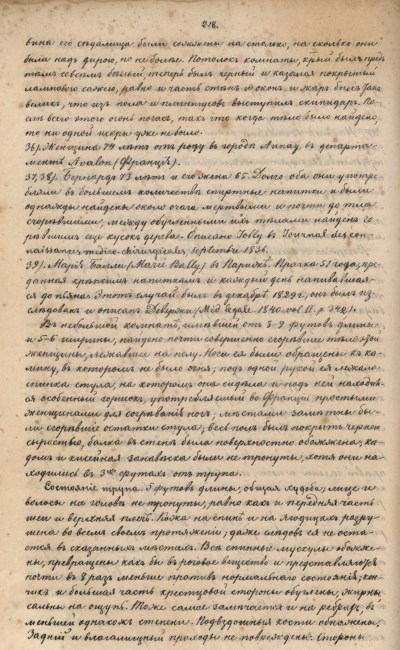 218.
вина его сѣдалища были сожжены на столько, на сколько они
были надъ дырою, но не болѣе. Потолокъ комнаты, который былъ предъ
тѣмъ совсѣмъ бѣлый, теперь былъ черный и казался покрытымъ
ламповою сажею, равно и часть стѣнъ и оконъ, и жаръ былъ такъ
великъ, что изъ пола и плинтусовъ выступилъ скипидаръ. По-
слѣ всего этого огонь погасъ, такъ что когда тѣло было найдено,
то ни одной искры уже не было.
36). Женщина 74 лѣтъ отъ роду въ городѣ въ департа-
ментѣ Avalon (Франція).
37, 38). Бернардъ 73 лѣтъ и его жена 65. Долго оба они употре-
бляли въ большомъ количествѣ спиртные напитки и были
однажды найдены около очага мертвыми и почти до тла
сгорѣвшими; между обугленными ихъ тѣлами найденъ го-
рѣвшій еще кусокъ дерева. Описано Jolly въ Journal des con-
naissances medico-chirurgicales, septembre 1836.
39). Марія Балли (Marie Bally) въ Парижѣ. Прачка 51 года, пре-
данная крѣпкимъ напиткамъ и каждый день напивавшая-
ся до пьяна. Этотъ случай былъ въ декабрѣ 1829 г., онъ былъ из-
слѣдованъ и описанъ Девержи (Méd légale 1840. vol II. p
Въ небольшой комнатѣ, имѣвшей отъ 8-9 футовъ длины,
и 5-6 ширины, найдено почти совершенно сгорѣвшее тѣло этой
женщины, лежавшее на полу. Ноги ея были обращены къ ка-
мину, въ которомъ не было огня; подъ одной рукой ея лежала
спинка стула, на которомъ она сидѣла и подъ ней находил-
ся особенный горшокъ, употребляемый во Франціи простыми
женщинами для согрѣванія ногъ; мѣстами замѣтны бы-
ли сгорѣвшіе остатки стула; весь полъ былъ покрытъ черною
сыростью, балка въ стѣнѣ была поверхностно обожжена; ко-
модъ и кисейная занавѣска были не тронуты, хотя они на-
ходились въ 3хъ футахъ отъ трупа.
Состояніе трупа. 5 футовъ длины; общая худоба; лице и
волосы на головѣ не тронуты, равно какъ и передняя часть
шеи и верхняя плечъ. Кожа на спинѣ и на ягодицахъ разру-
шена во всемъ своемъ протяженіи; даже слѣдовъ ея не оста-
ется въ сказанныхъ мѣстахъ. Всѣ спинные мускулы обнаже-
ны, превращены какъ бы въ роговое вещество и представляются
почти въ 8 разъ меньше противъ нормальнаго состоянія; ко-
и большая часть крестцовой стороны обуглены, жирны,
сальны на ощупь. Тоже самое замѣчается и на ребрахъ, въ
меньшей однакожъ степени. Подвздошныя кости обнажены,
Задній и влагалищный проходы не повреждены. Стороны